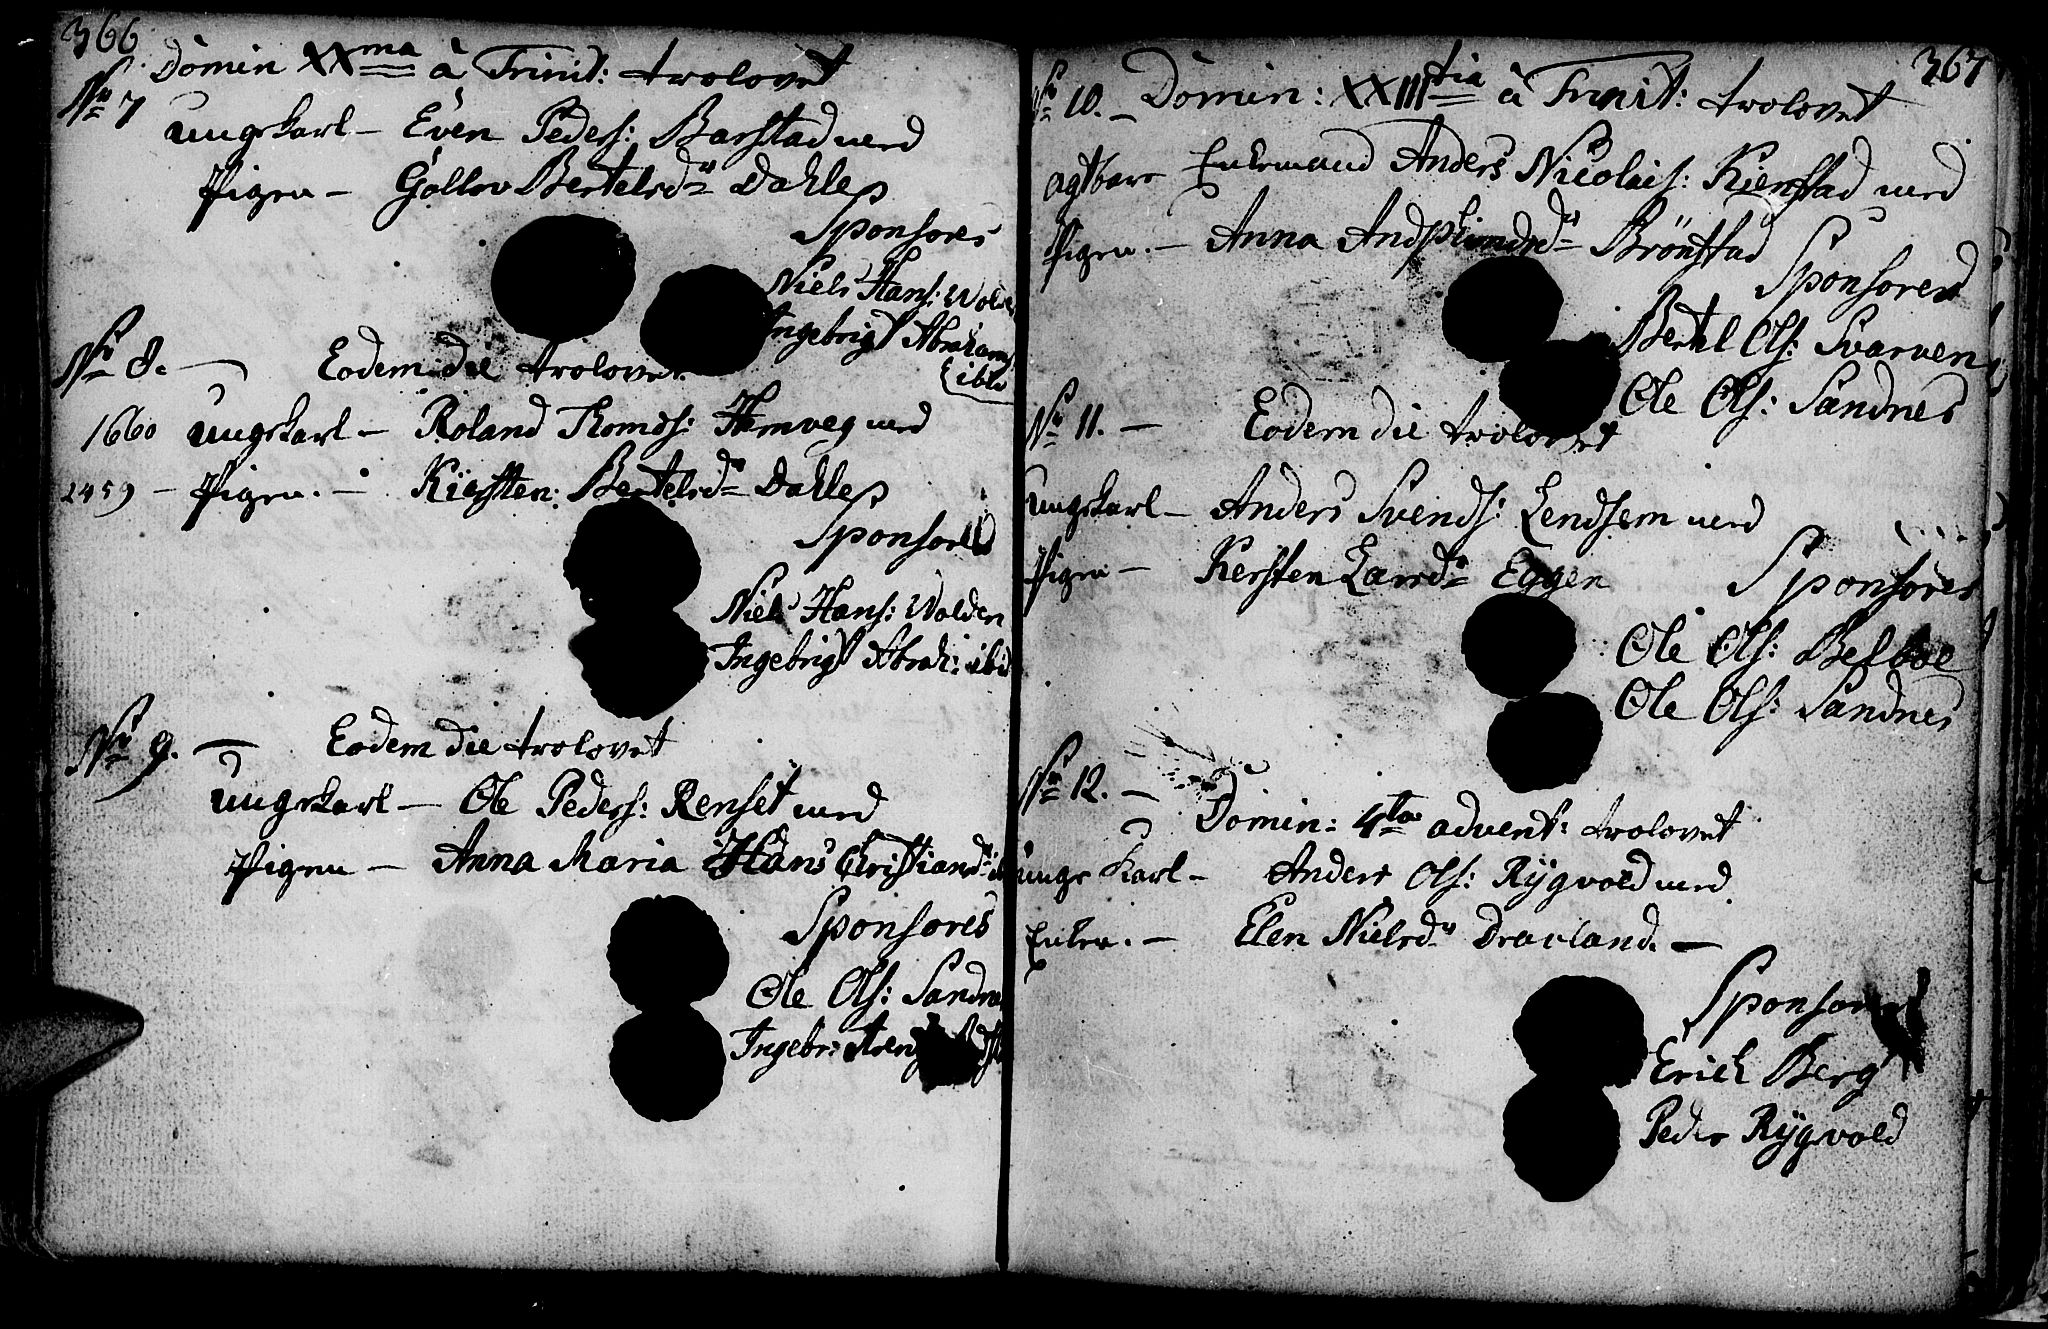 366
Domin XXma à Trinit: trolovet
No 7
ungekarl – Even Peders: Barstad med
Pigen – Gollov Bertelsdr Dahle
Sponsores
Niels Hans: Wolden
Ingebrigt Abraham
ibid
No 8. – Eodem die trolovet
1660 ungekarl – Roland Thomæs: Hemveg med
2459 – Pigen. – Kiersten: Bertelsdr Dahle
Sponsores
Niels Hans: Wolden
Ingebrigt Abrah: ibid
No 9. – Eodem die trolovet
ungekarl – Ole Peders: Renset med
Pigen – Anna Maria Hans Christiansd:
Sponsores
Ole Ols: Sandnes
Ingebr:
367
No 10. – Domin: XXIIItia à Trinit: trolovet
agtbare Enkemand Anders Nicolais: Kienstad med
Pigen. – Anna Brönstad
Sponsores
Bertel Ols: Svarven
Ole Ols: Sandnes
No 11. – Eodem die trolovet
ungekarl – Anders Svends: Lendsem med
Pigen – Kersten Larsdr Eggen
Sponsores
Ole Ols: Besboe
Ole Ols: Sandnes
No 12. –
Domin: 4ta advent: trolovet
unge karl – Anders Ols: Rÿgvold med
Enken. – Elen Nielsdr Dravland. –
Sponsores
Erich Berg
Peder Rÿgvold